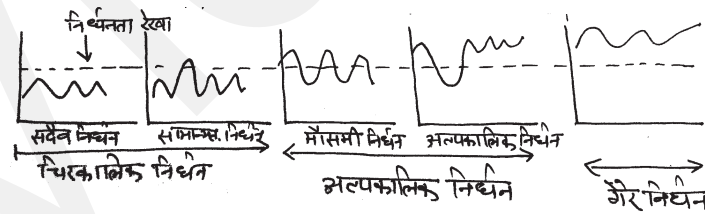 निर्धनता रेखा
सदैव निर्धन सामान्यतः निर्धन मौसमी निर्धन अल्पकालिक निर्धन
चिरकालिक निर्धन अल्पकालिक निर्धन गैर निर्धन